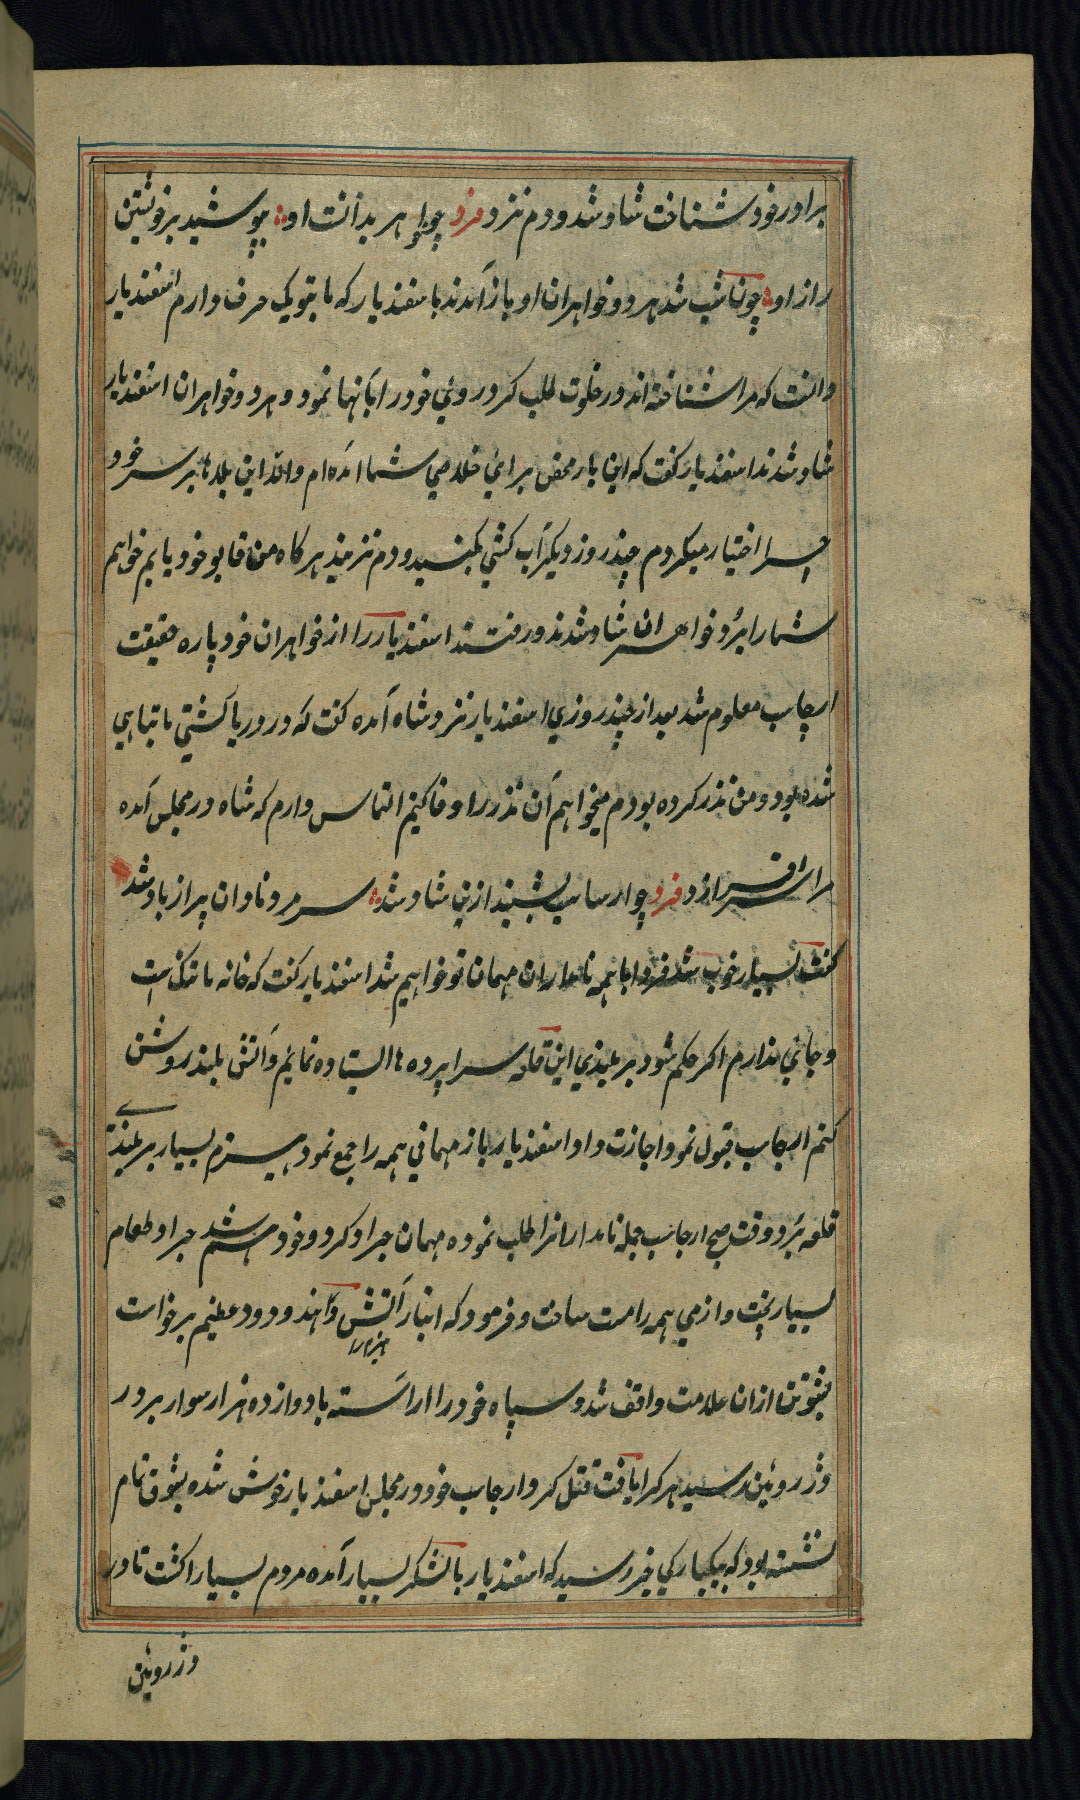 برادر خود شناخت شاد شد و دم نزد فرد چو خواهر بدانست او ؞ بپوشید بر خویشتن
راز او ؞ چون شب شد هر دو خواهران او باز آمدند باسفندیار که ما بتو یک حرف دارم اسفندیار
دانست که مرا شناخته اند در خلوت طلب کرد روئی خود را بآنها نمود و هر دو خواهران اسفندیار
شاد شدند اسفندیار گفت که این بار محض برائی خلاصی شما آمده ام والّا این بلاها بر سر خود
چرا اختیار میکردم چند روز دیگر آب کشی بکنید و دم نزنید هر گاه من قابو خود یابم خواهم
شما را برد خواهران شاد شدند و رفتند اسفندیار را از خواهران خود پاره حقیقت
ارجاسب معلوم شد بعد از چند روزی اسفندیار نزد شاه آمده گفت که در دریا کشتی ما تباهی
شده بود و من نذر کرده بودم میخواهم آن نذر را وفا کنم التماس دارم که شاه در مجلس آمده
مرا سرافراز د فرد چو ارجاسب بشنید ازین شاد شد ؞ سر مرد نادان پر از باد شد
گفت بسیار خوب شد فردا با همه نامداران مهمان تو خواهیم شد اسفندیار گفت که خانه ما تنک است
و جائی ندارم اگر حکم شود بر بلندی این قلعه سراپرده ها ایستاده نمایم و آتش بلند روشن
کنم ارجاسب قبول نمود اجازت داد اسفندیار باز مهمانی همه را جمع نمود هیزم بسیار بر بلندی
قلعه برد وقت صبح ارجاسب جمله نامداران را طلب نموده مهمان جراد کرد و خود هم شد جراد طعام
بسیار پخت و از می همه را مست ساخت و فرمود که انبار آتش دادند و دود عظیم برخواست
هیزم را
بشوتن ازان علامت واقف شد و سپاه خود را آراسته با دوازده هزار سوار بر در
دژ روئین رسید هر که را یافت قتل کرد ارجاسب خود در مجلس اسفندیار خوش شده بشوق تمام
نشسته بود که بیکبارکی خبر رسید که اسفندیار با لشکر بسیار آمده مردم بسیار را کشت تا در
دژ روئین